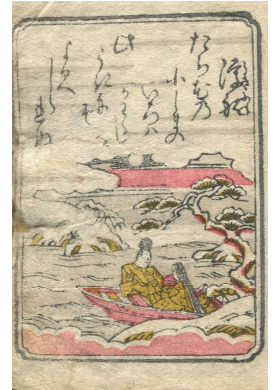 浮舩
たちはな乃
小しまの
いろハ
かはらし
此
うきふね
そ
ゆくへ
しら
れぬ